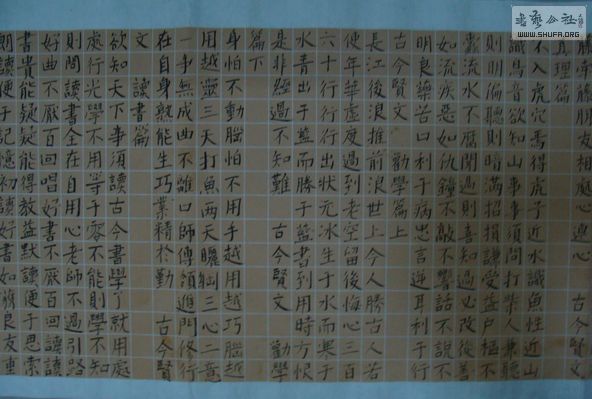 朋友相處心連心 古今賢文
真理篇
不入虎穴焉得虎子近水識魚性近山
識鳥音欲知山事事須問打柴人兼聽
則明偏聽則暗滿招損謙受益戶樞不
蠹流水不腐聞過則喜知過必改從善
如流疾惡如仇鐘不敲不響話不說不
明良藥苦口利于病忠言逆耳利于行
古今賢文 勸學篇上
長江後浪推前浪世上今人勝古人若
使年華虛度過到老空留後悔心三百
六十行行行出狀元冰生于水而寒于
水青出于藍而勝于藍書到用時方恨
是非經過不知難 古今賢文 勸學
篇下
身怕不動腦怕不用手越用越巧腦越
用越靈三天打魚兩天曬網三心二意
一事無成曲不離口師傅領進門修行
在自身熟能生巧業精于勤 古今賢
文 讀書篇
欲知天下事須讀古今書學了就用處
處行光學不用等于零不能則學不知
則問讀書全在自用心老師不過引路
好曲不厭百回唱好書不厭百回讀讀
書貴能疑疑能得教益默讀便于思索
朗讀便于記憶初讀好書如獲良友重
書藝公社
WWW.SHUFA.ORG